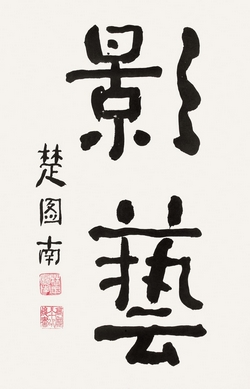 影藝
楚图南